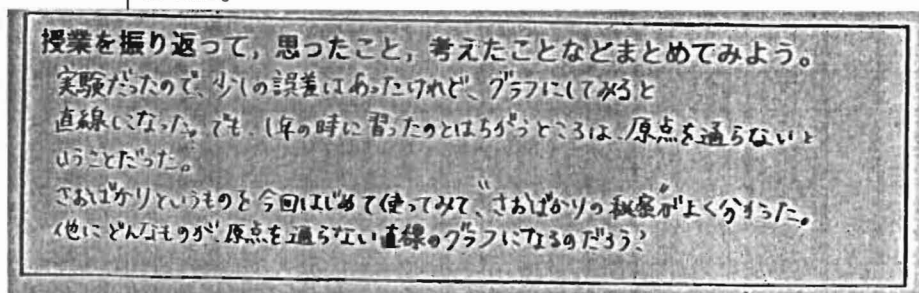 授業を振り返って，思ったこと，考えたことなどまとめてみよう。
実験だったので、少しの誤差はあったけれど、グラフにしてみると
直線になった。でも、1年の時に習ったのとはちがうところは、原点を通らないと
いうことだった。
さおばかりというものを今回はじめて使ってみて、“さおばかりの秘密”がよく分かった。
他にどんなものが、原点を通らない直線のグラフになるのだろう？